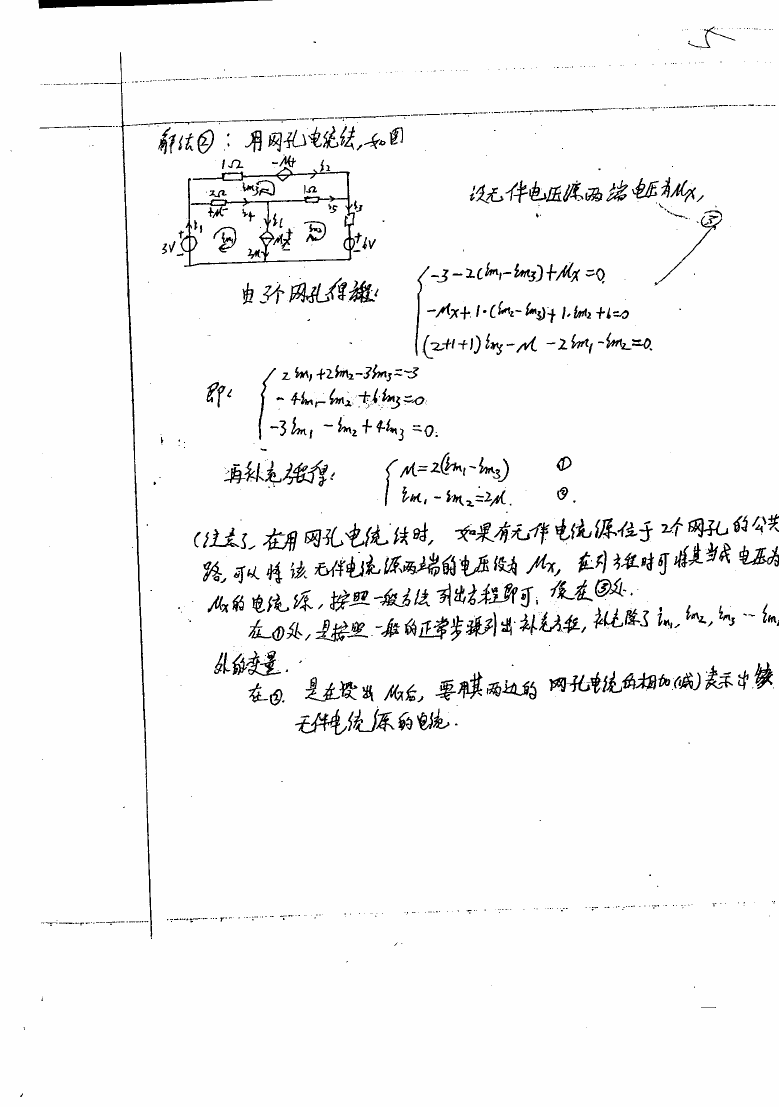 解法②：用网孔电流法,如图
1Ω -M+ i2
2Ω im3 1Ω
+M- i4 i5 i3
3V + - i1 im1 i6 Mx + - 2M im2 + - 6V
设无伴电压源两端电压为Mx,
③
由3个网孔得
-3-2(im1-im3)+Mx=0.
-Mx+1·(im2-im3)+1·im2+6=0
(2+1+1)im3-M-2im1-im2=0.
即:
2im1+2im2-3im3=-3
-4im1-im2+6im3=0
-3im1-im2+4im3=0.
再补充方程得:
M=2(im1-im3) ①
im1-im2=2M. ②.
(注意), 在用网孔电流法时, 如果有无伴电流源位于2个网孔的公共
路,可以将该无伴电流源两端的电压设为Mx, 在列方程时可将其当成电压为
Mx的电流源, 按照一般方法列出方程即可, 像在③处.
在①处, 是按照一般的正常步骤列出补充方程, 补充除了im1, im2, im3…im
外的变量.
在②. 是在设出Mx后, 要用其两边的网孔电流的相加(减)表示出该
无伴电流源的电流.